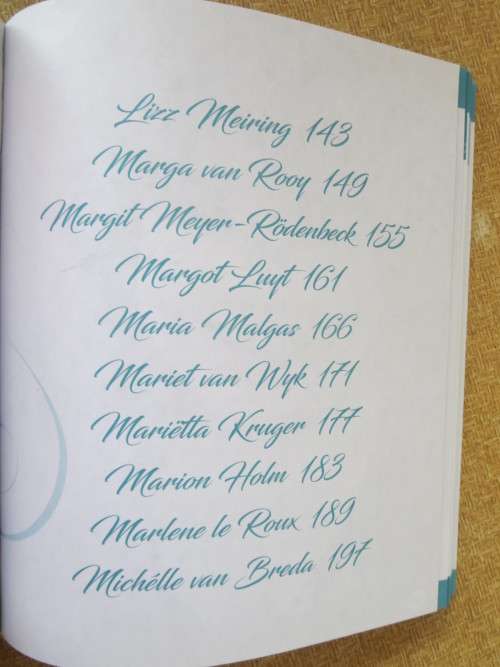 Lizz Meiring 143
Marga van Rooy 149
Margit Meyer-Rödenbeck 155
Margot Luyt 161
Maria Malgas 166
Mariet van Wyk 171
Mariëtta Kruger 177
Marion Holm 183
Marlene le Roux 189
Michélle van Breda 197